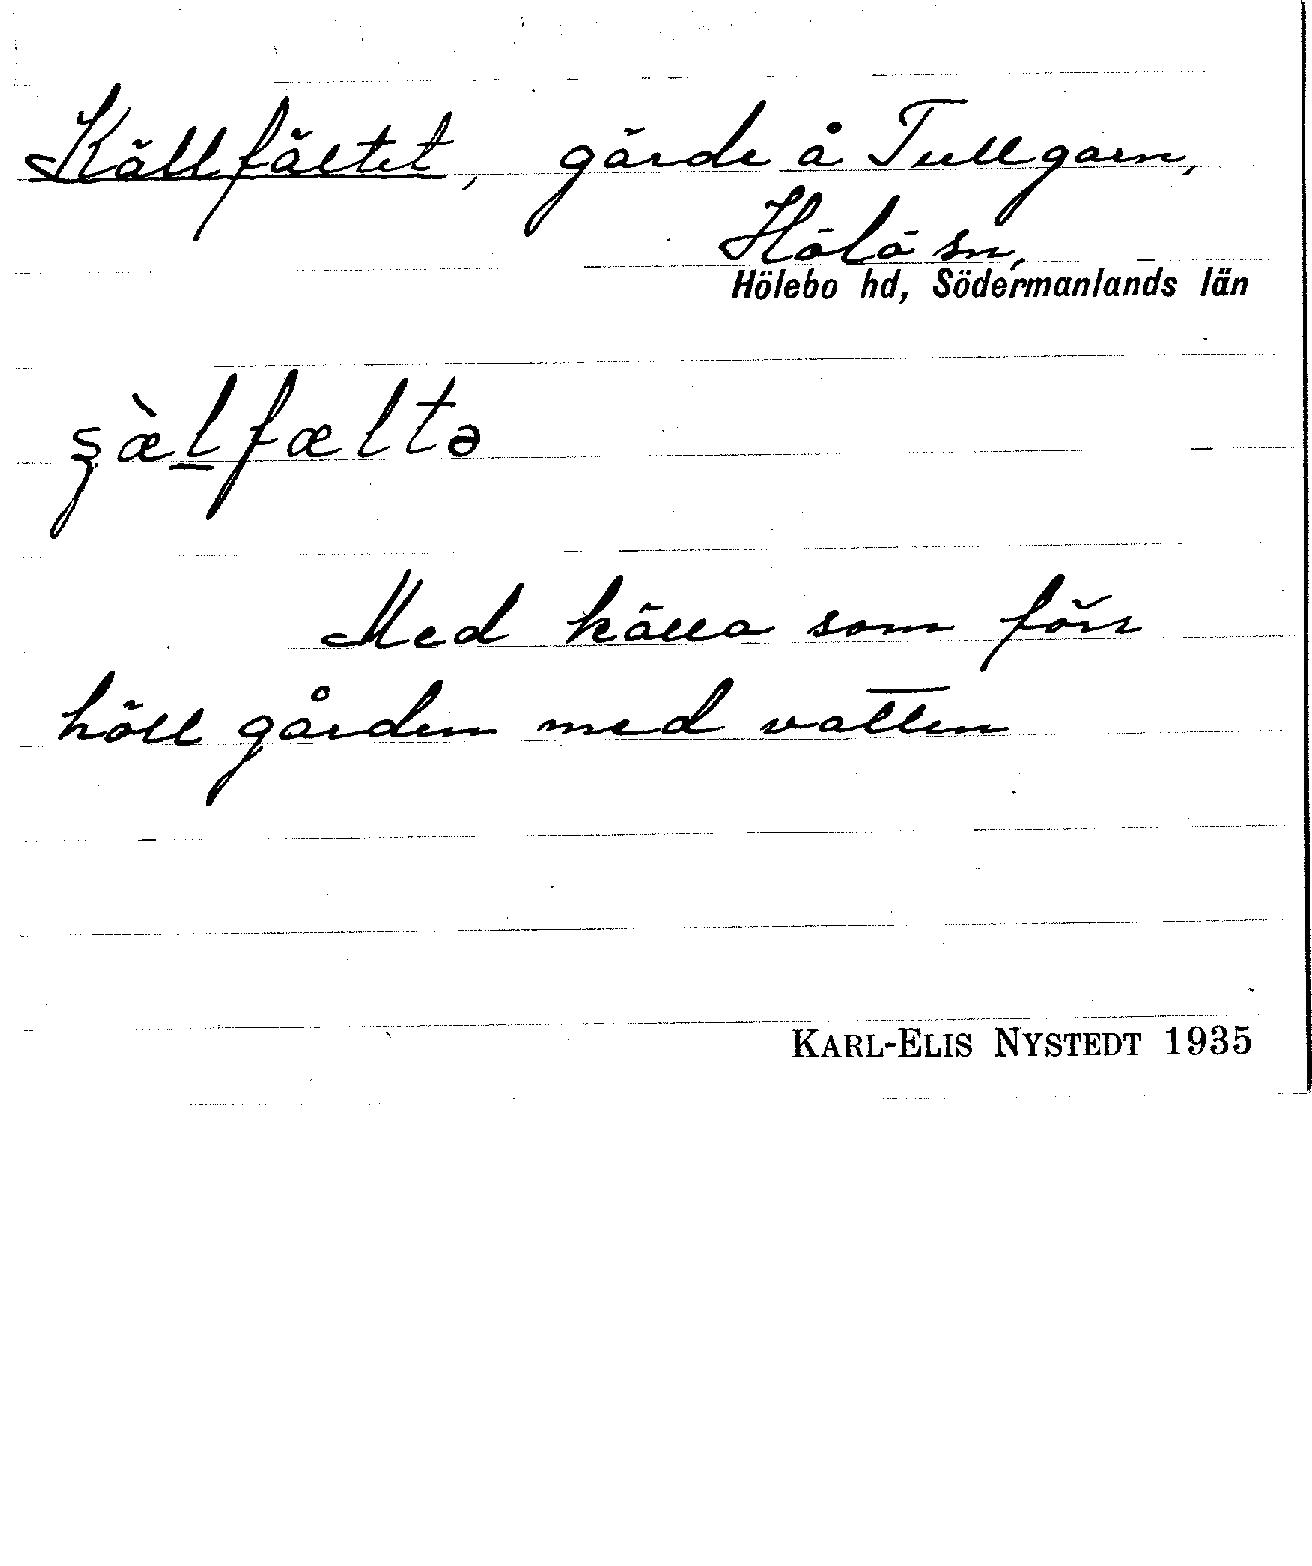 Källfältet, gärde å Tullgarn,
Hölö sn,
Hölebo hd, Södermanlands län
ʂæ̀l̲fæltə
Med källa som förr
höll gården med vatten
KARL-ELIS NYSTEDT 1935